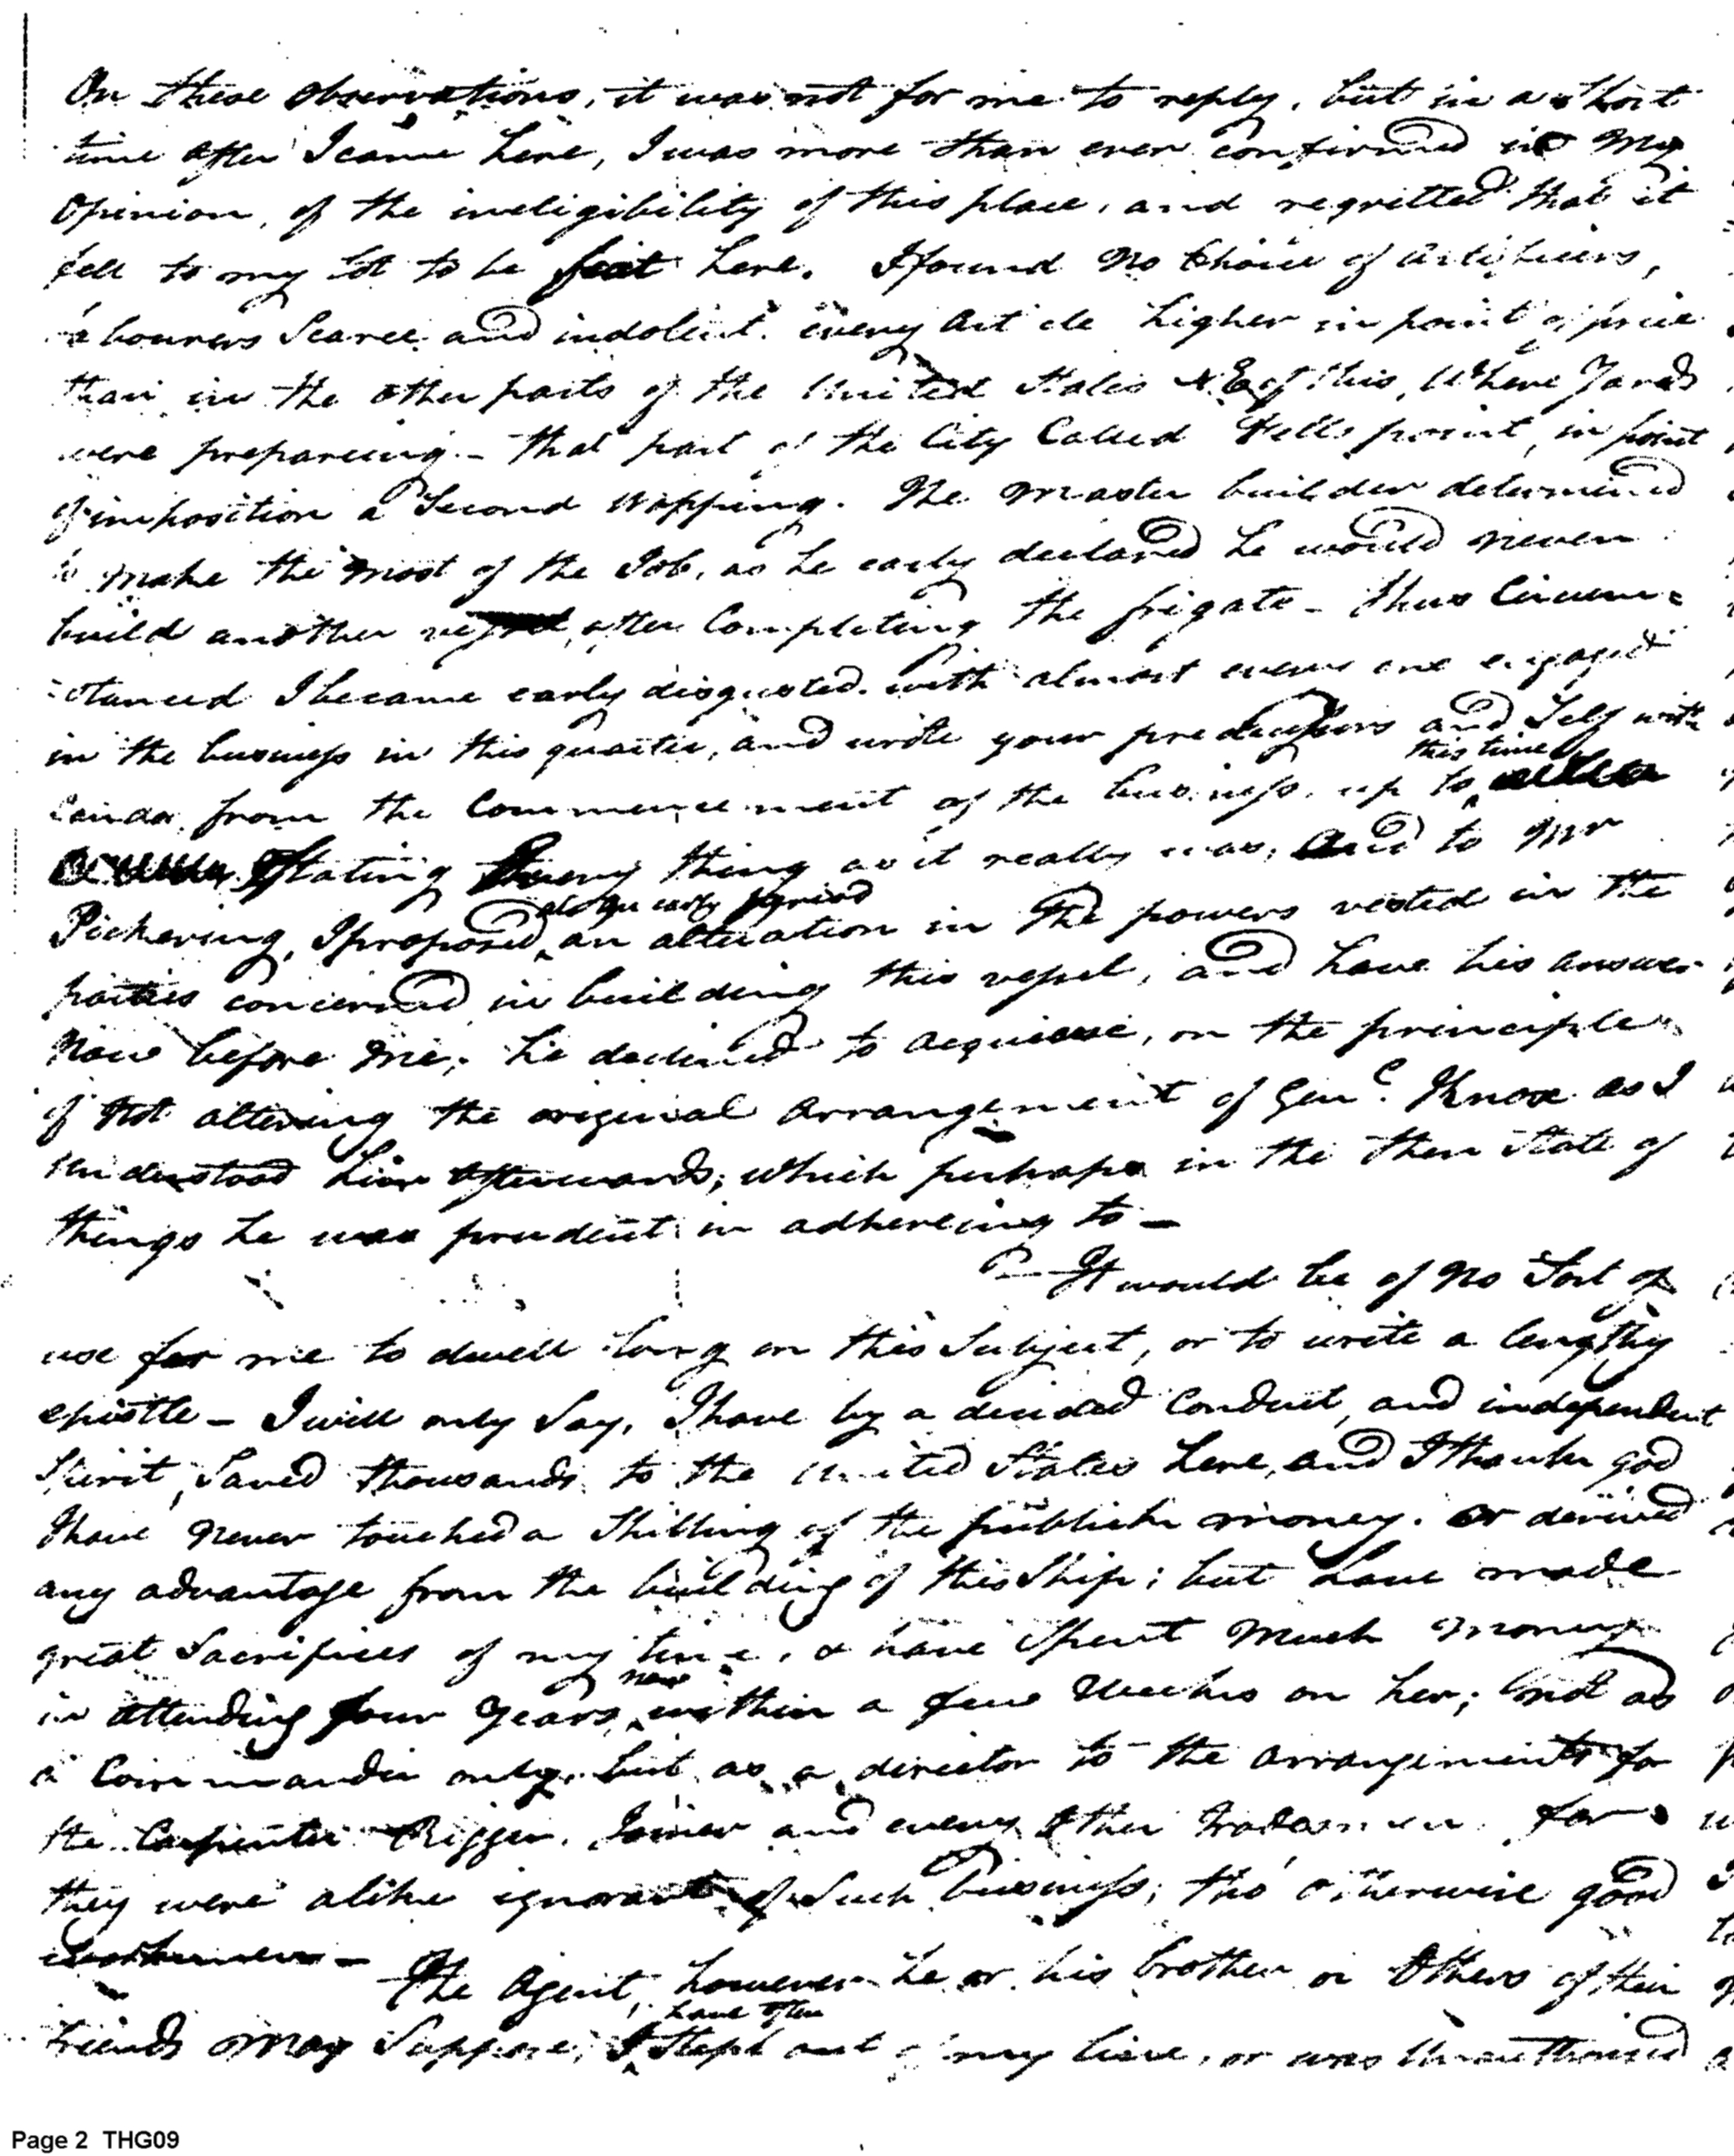 On these observations, it was not for me to reply, but in a short
time after I came here, I was more than ever confirmed in my
Opinion, of the ineligibility of this place, and regretted that it
fell to my lot to be here. I found no Choice of artificers,
labourers Scarce and indolent. every article higher in point of price
than in the other parts of the United States N.E. of this, Where Yards
were prepareing - that part of the City Called Fells point, in point
of imposition a Second Wapping. The master builder determined
to make the most of the Job, as he early declared he would never
build another vessel, after Compleating the frigate - thus Circum=
=stanced I became early disgusted with almost every one engaged
in the business in this quarter, and wrote your predecessors and Self with
Candor from the Commencement of the business, up to
this time
Stating Every thing as it really was, and to Mr
Pickering, I proposed an alteration in the powers vested in the
at an early period
parties concerned in building this vessel, and have his answer
Now before me; he declined to acquiesce, on the principle
of Not altering the original arrangement of Genl. Knox as I
Understood him afterwards; which perhaps in the then State of
things he was prudent in adhereing to —
— It would be of no Sort of
use for me to dwell long on this Subject, or to write a lengthy
epistle - I will only Say, I have by a decided Conduct, and independent
Spirit, Saved thousands to the United States here, and I thank god
I have never touched a Shilling of the publick money. or derived
any advantage from the building of this Ship; but have made
great Sacrifices of my time, & have Spent much money
in attending four years within a few Weeks on her; not as
now
a Commander only, but as a director to the arrangements for
the Carpenter Rigger, Joiner and every Other tradesman for
they were alike ignorant of Such business; tho' otherwise good
workmen —
The Agent, however he or his brother or Others of their
friends may Suppose, I Stept out of my line, or was Unauthorised
have often
Page 2 THG09